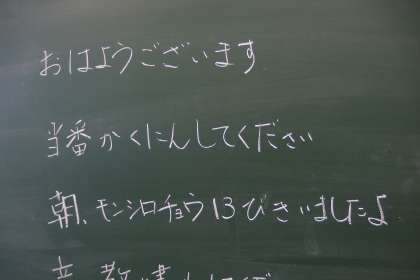 おはようございます
当番かくにんしてください
朝、モンシロチョウ13びきいましたよ